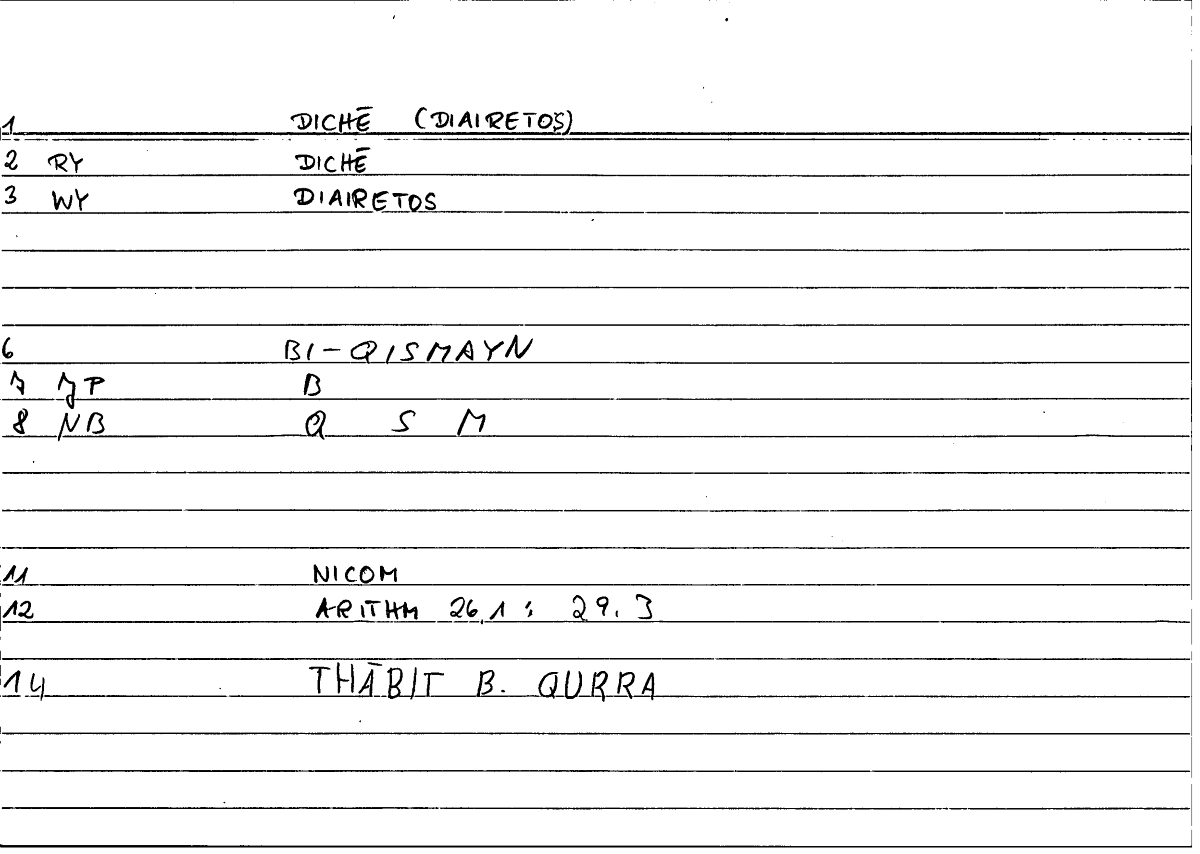 1 DICHĒ (DIAIRETOS)
2 RY DICHĒ
3 WY DIAIRETOS
6 BI-QISMAYN
7 JP B
8 NB Q S M
11 NICOM
12 ARITHM 26,1 : 29.3
14 THĀBIT B. QURRA